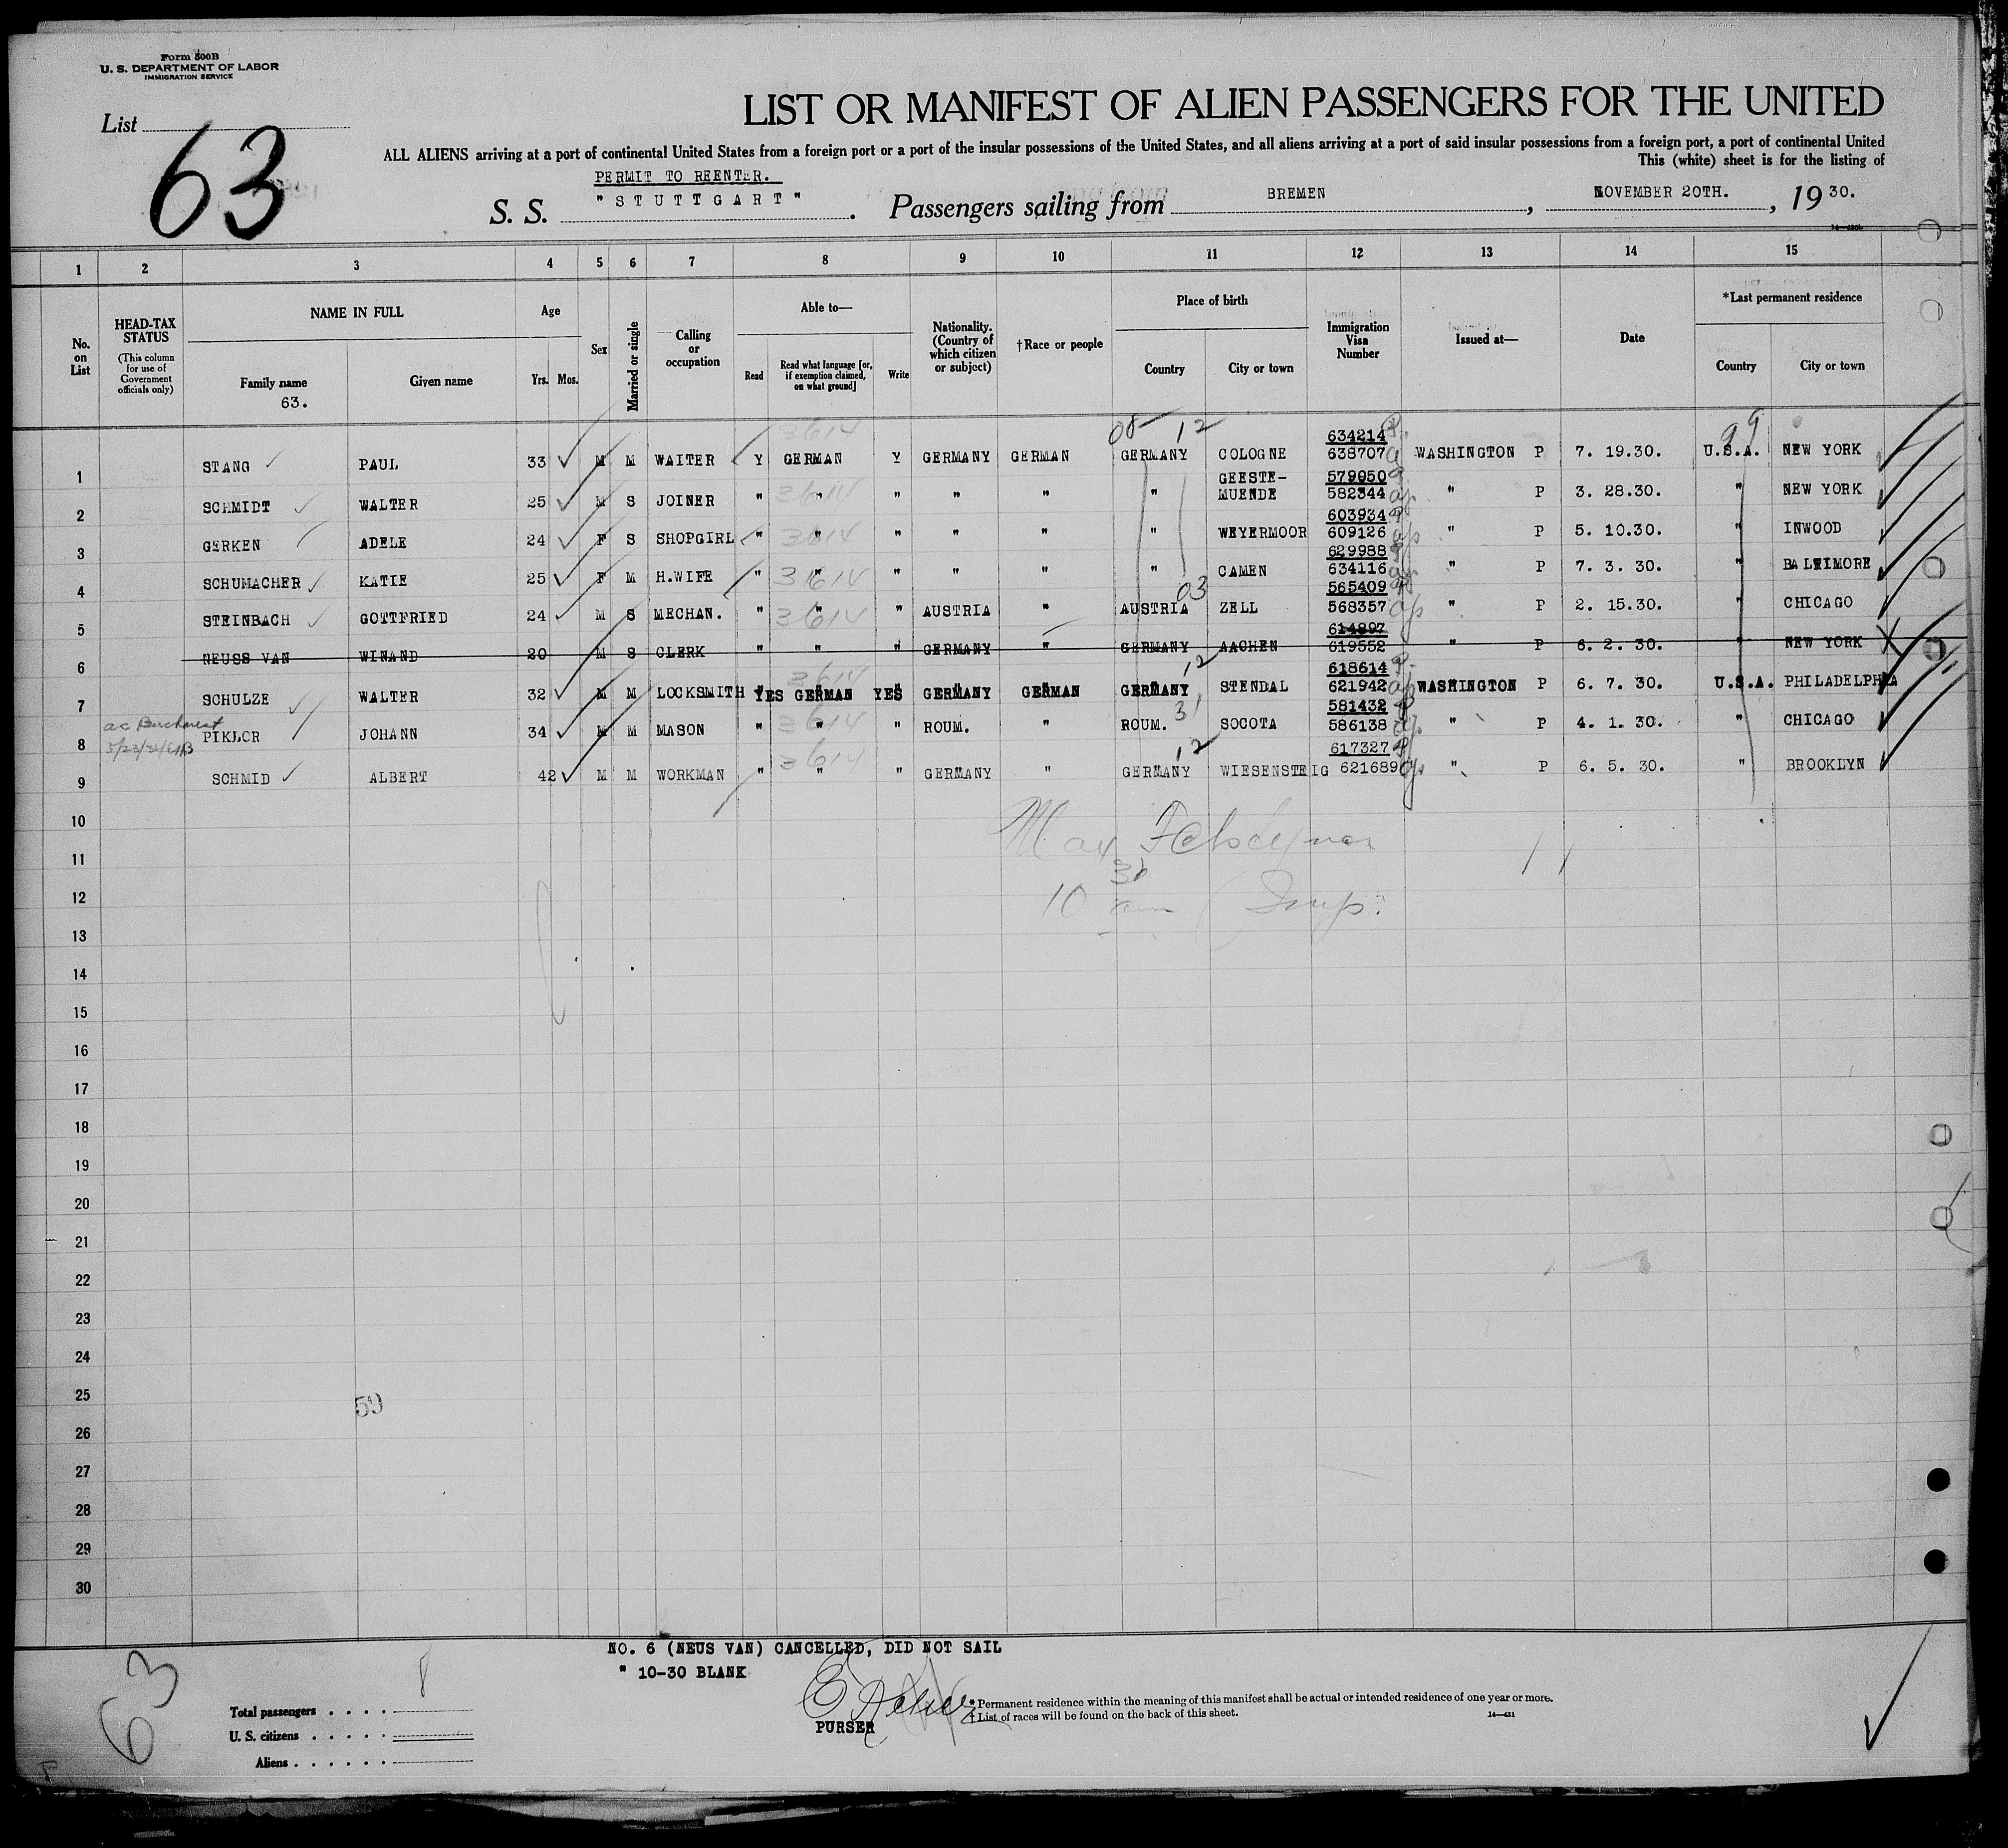 Form 500B
U. S. DEPARTMENT OF LABOR
IMMIGRATION SERVICE
List
63
LIST OR MANIFEST OF ALIEN PASSENGERS FOR THE UNITED
ALL ALIENS arriving at a port of continental United States from a foreign port or a port of the insular possessions of the United States, and all aliens arriving at a port of said insular possessions from a foreign port, a port of continental United
This (white) sheet is for the listing of
PERMIT TO REENTER.
S. S. "STUTTGART". Passengers sailing from BREMEN, NOVEMBER 20TH., 1930.
1 2 3 4 5 6 7 8 9 10 11 12 13 14 15
No. on List
HEAD-TAX STATUS (This column for use of Government officials only)
NAME IN FULL
Family name
63.
Given name
Age
Yrs. Mos.
Sex
Married or single
Calling or occupation
Able to—
Read
Read what language [or, if exemption claimed, on what ground]
Write
Nationality. (Country of which citizen or subject)
†Race or people
Place of birth
Country
City or town
Immigration Visa Number
Issued at—
Date
*Last permanent residence
Country
City or town
3614 05 12 99
634214
1 STANG PAUL 33 M M WAITER Y GERMAN Y GERMANY GERMAN GERMANY COLOGNE 638707 WASHINGTON P 7. 19.30. U.S.A. NEW YORK
GEESTE- 579050
2 SCHMIDT WALTER 25 M S JOINER " " 3614 " " " " MUENDE 582344 " P 3. 28.30. " NEW YORK
603934
3 GERKEN ADELE 24 F S SHOPGIRL " " 3614 " " " " WEYERMOOR 609126 " P 5. 10.30. " INWOOD
629988
4 SCHUMACHER KATIE 25 F M H.WIFE " " 3614 " " " " CAMEN 634116 " P 7. 3. 30. " BALTIMORE
03 565409
5 STEINBACH GOTTFRIED 24 M S MECHAN. " " 3614 " AUSTRIA " AUSTRIA ZELL 568357 " P 2. 15.30. " CHICAGO
614897
6 NEUSS VAN WINAND 20 M S CLERK " " " GERMANY " GERMANY AACHEN 619552 " P 6. 2. 30. " NEW YORK
3614 12 618614
7 SCHULZE WALTER 32 M M LOCKSMITH YES GERMAN YES GERMANY GERMAN GERMANY STENDAL 621942 WASHINGTON P 6. 7. 30. U.S.A. PHILADELPHIA
31 581432
ac Bucharest
8 PIKLOR JOHANN 34 M M MASON " " 3614 " ROUM. " ROUM. SOCOTA 586138 " P 4. 1. 30. " CHICAGO
3614 12 617327
9 SCHMID ALBERT 42 M M WORKMAN " " " GERMANY " GERMANY WIESENSTEIG 621689 " P 6. 5. 30. " BROOKLYN
10
Max
11
12
10 Insp.
13
14
15
16
17
18
19
20
21
22
23
24
25
59
26
27
28
29
30
NO. 6 (NEUS VAN) CANCELLED, DID NOT SAIL
" 10-30 BLANK
63
8
Total passengers
U. S. citizens
Aliens
PURSER
*Permanent residence within the meaning of this manifest shall be actual or intended residence of one year or more.
†List of races will be found on the back of this sheet.
14—431